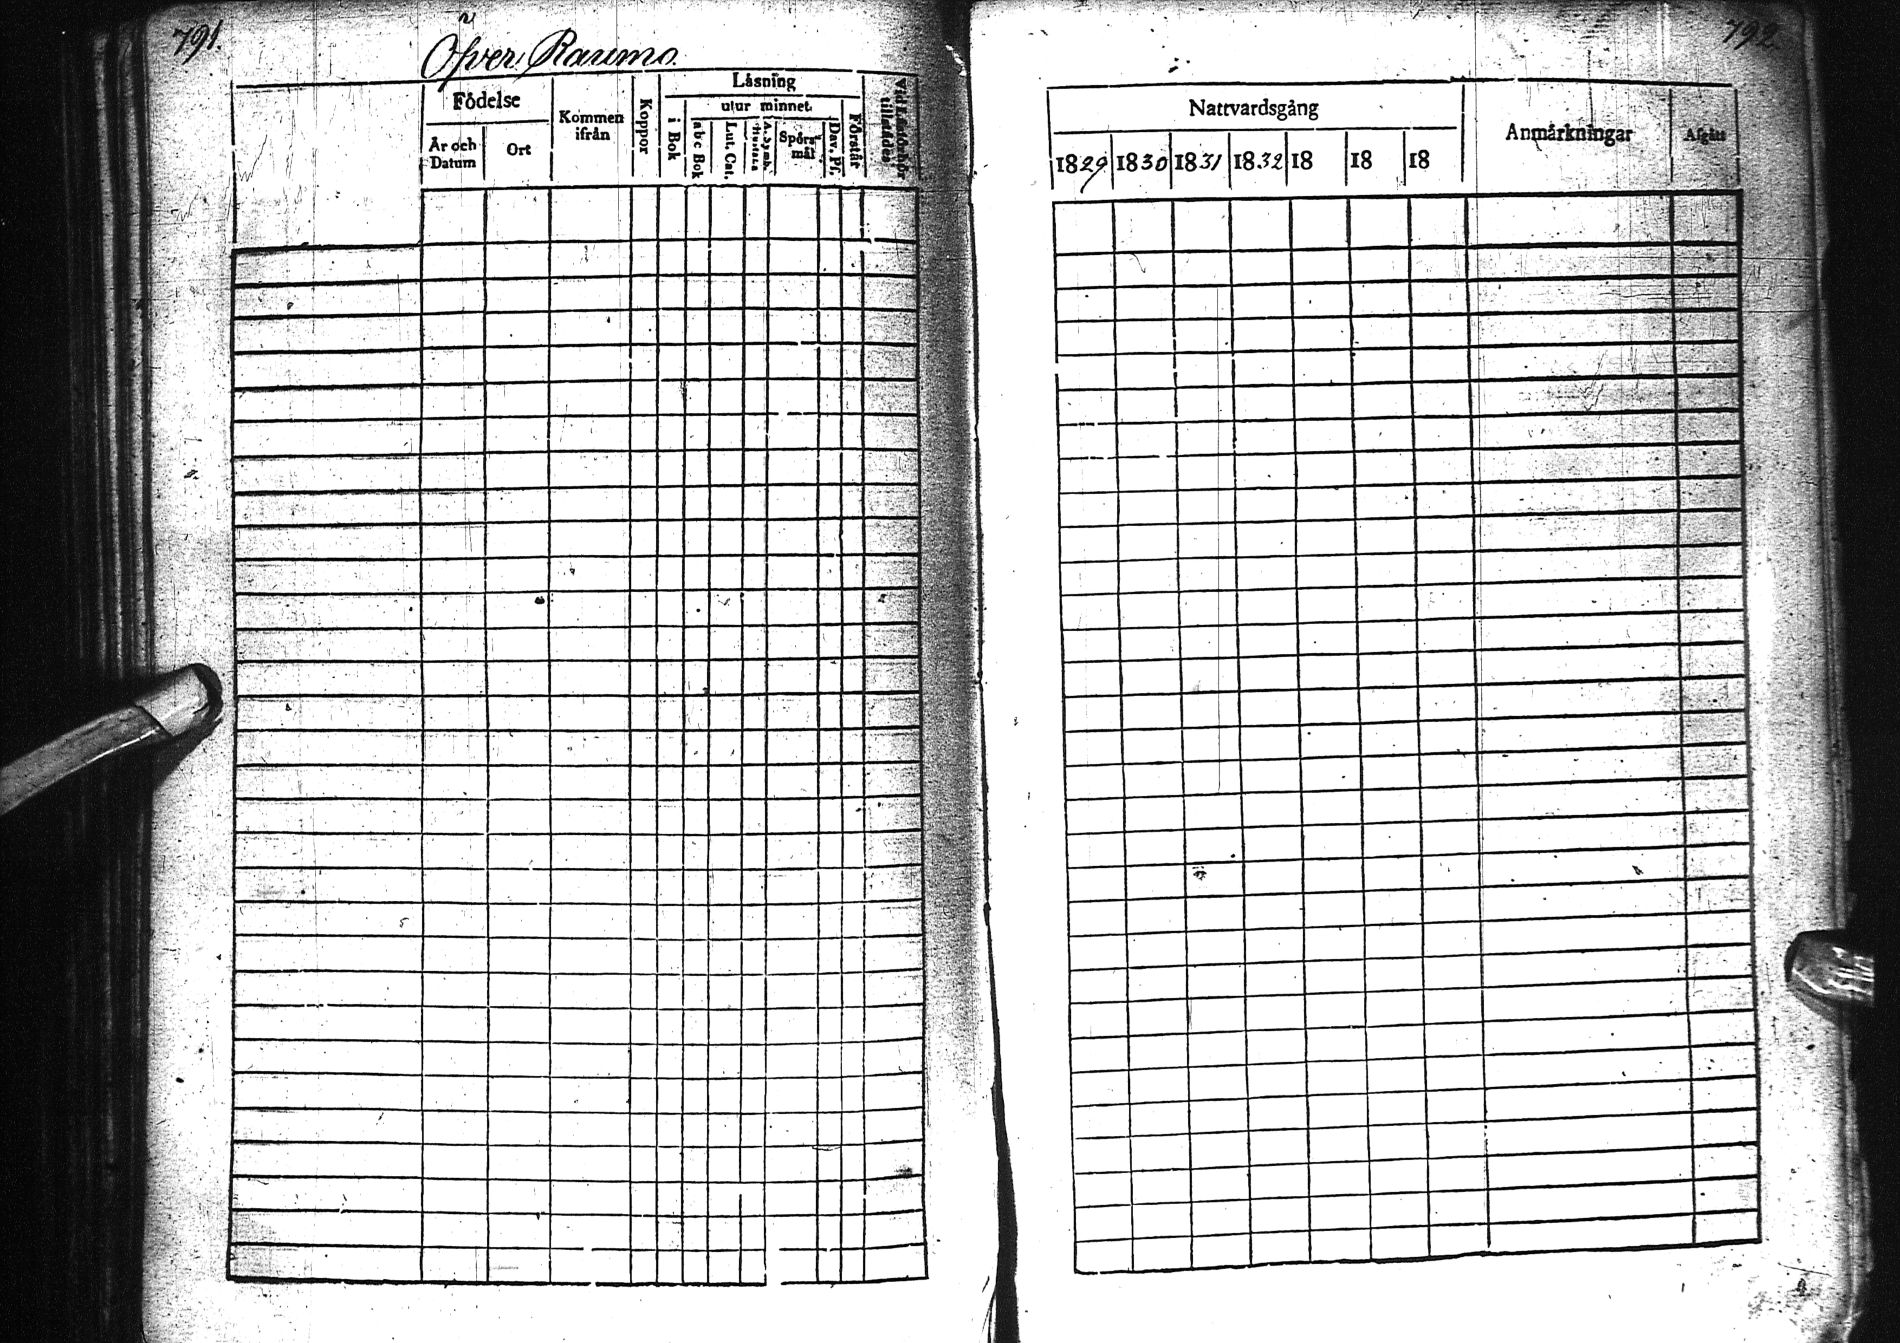 791.
Öfver Raumo.
Födelse
År och Datum
Ort
Kommen ifrån
Koppor
Låsning
i Bok
utur minnet.
a b c Bok
Lut. Cat.
A. Symb.
Spörsmål
Dav. Ps.
Förstår
792
Nattvardsgång
1829 1830 1831 1832 18 18 18
Anmårkningar
Afgått